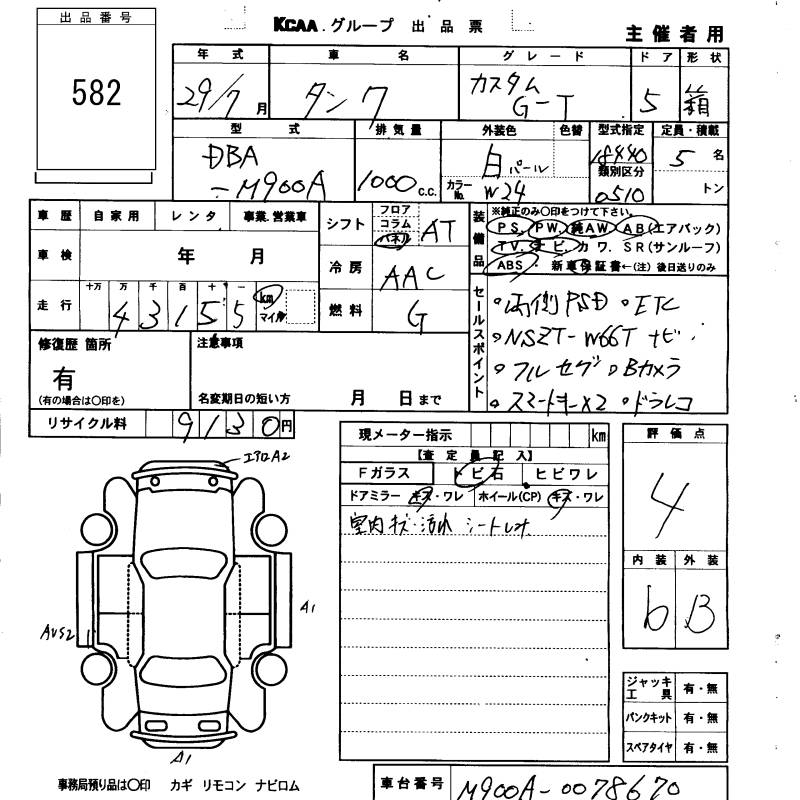 出品番号
582
KCAA グループ 出品票
主催者用
年式 車名 グレード ドア 形状
29/7月 タンク カスタム G-T 5 箱
型式 排気量 外装色 色替 型式指定 定員・積載
DBA-M900A 1000c.c. 白パール カラーNo. W24 18440 類別区分 0510 5名 トン
車歴 自家用 レンタ 事業.営業車
車検 年 月
走行 十万 万 千 百 十 一
43155 km マイル
シフト フロア コラム パネル AT
冷房 AAC
燃料 G
装備品 ※純正のみ〇印をつけて下さい。
PS. PW. 純AW. AB(エアバック)
TV. ナビ. カワ. SR(サンルーフ)
ABS. 新車保証書←(注)後日送りのみ
セールスポイント
両側PSD ETC
NSZT-W66T ナビ
フルセグ Bカメラ
スマートキー×2 ドラレコ
修復歴 箇所
有
(有の場合は〇印を)
注意事項
名変期日の短い方 月 日まで
リサイクル料 9130円
現メーター指示 km
【査定員記入】
Fガラス トビ石 ヒビワレ
ドアミラー キズ・ワレ ホイール(CP) キズ・ワレ
室内キズ・汚れ シート
評価点
4
内装 外装
b B
エアロA2
A1
AUS2
A1
ジャッキ工具 有・無
パンクキット 有・無
スペアタイヤ 有・無
事務局預り品は〇印 カギ リモコン ナビロム
車台番号 M900A-0078670